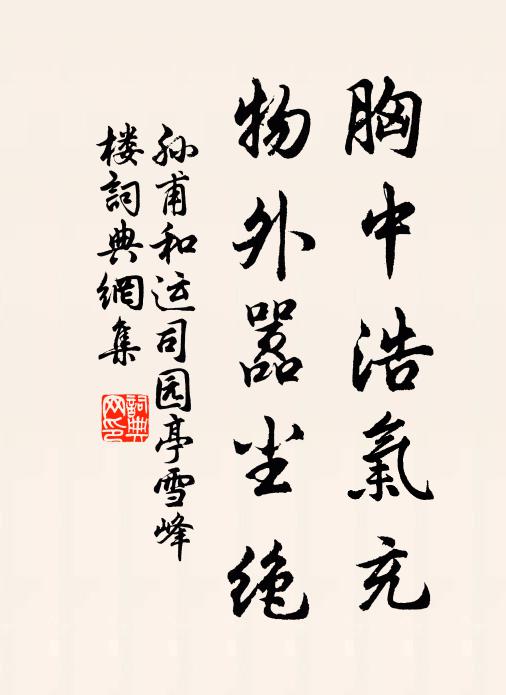 胸中浩氣充
物外嚣尘绝
孙甫和运司园亭雪峰
楼詞典網集
詞典
网印